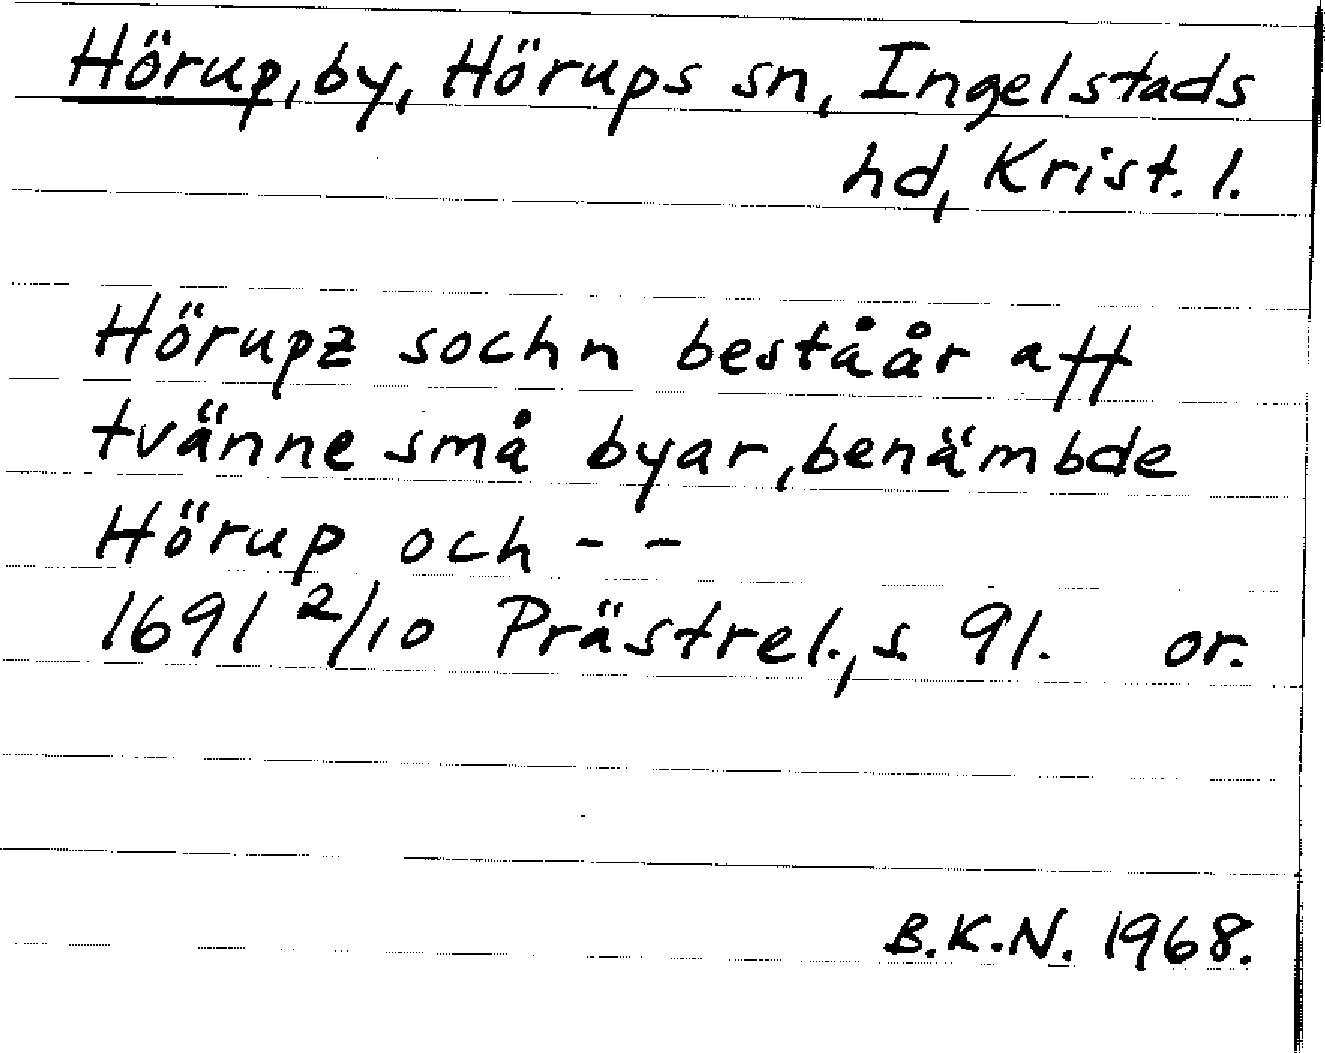 Hörup, by, Hörups sn, Ingelstads
hd, Krist. l.
Hörupz sochn beståår aff
tvänne små byar, benämbde
Hörup och - -
1691 2/10 Prästrel., s. 91. or.
B.K.N. 1968.